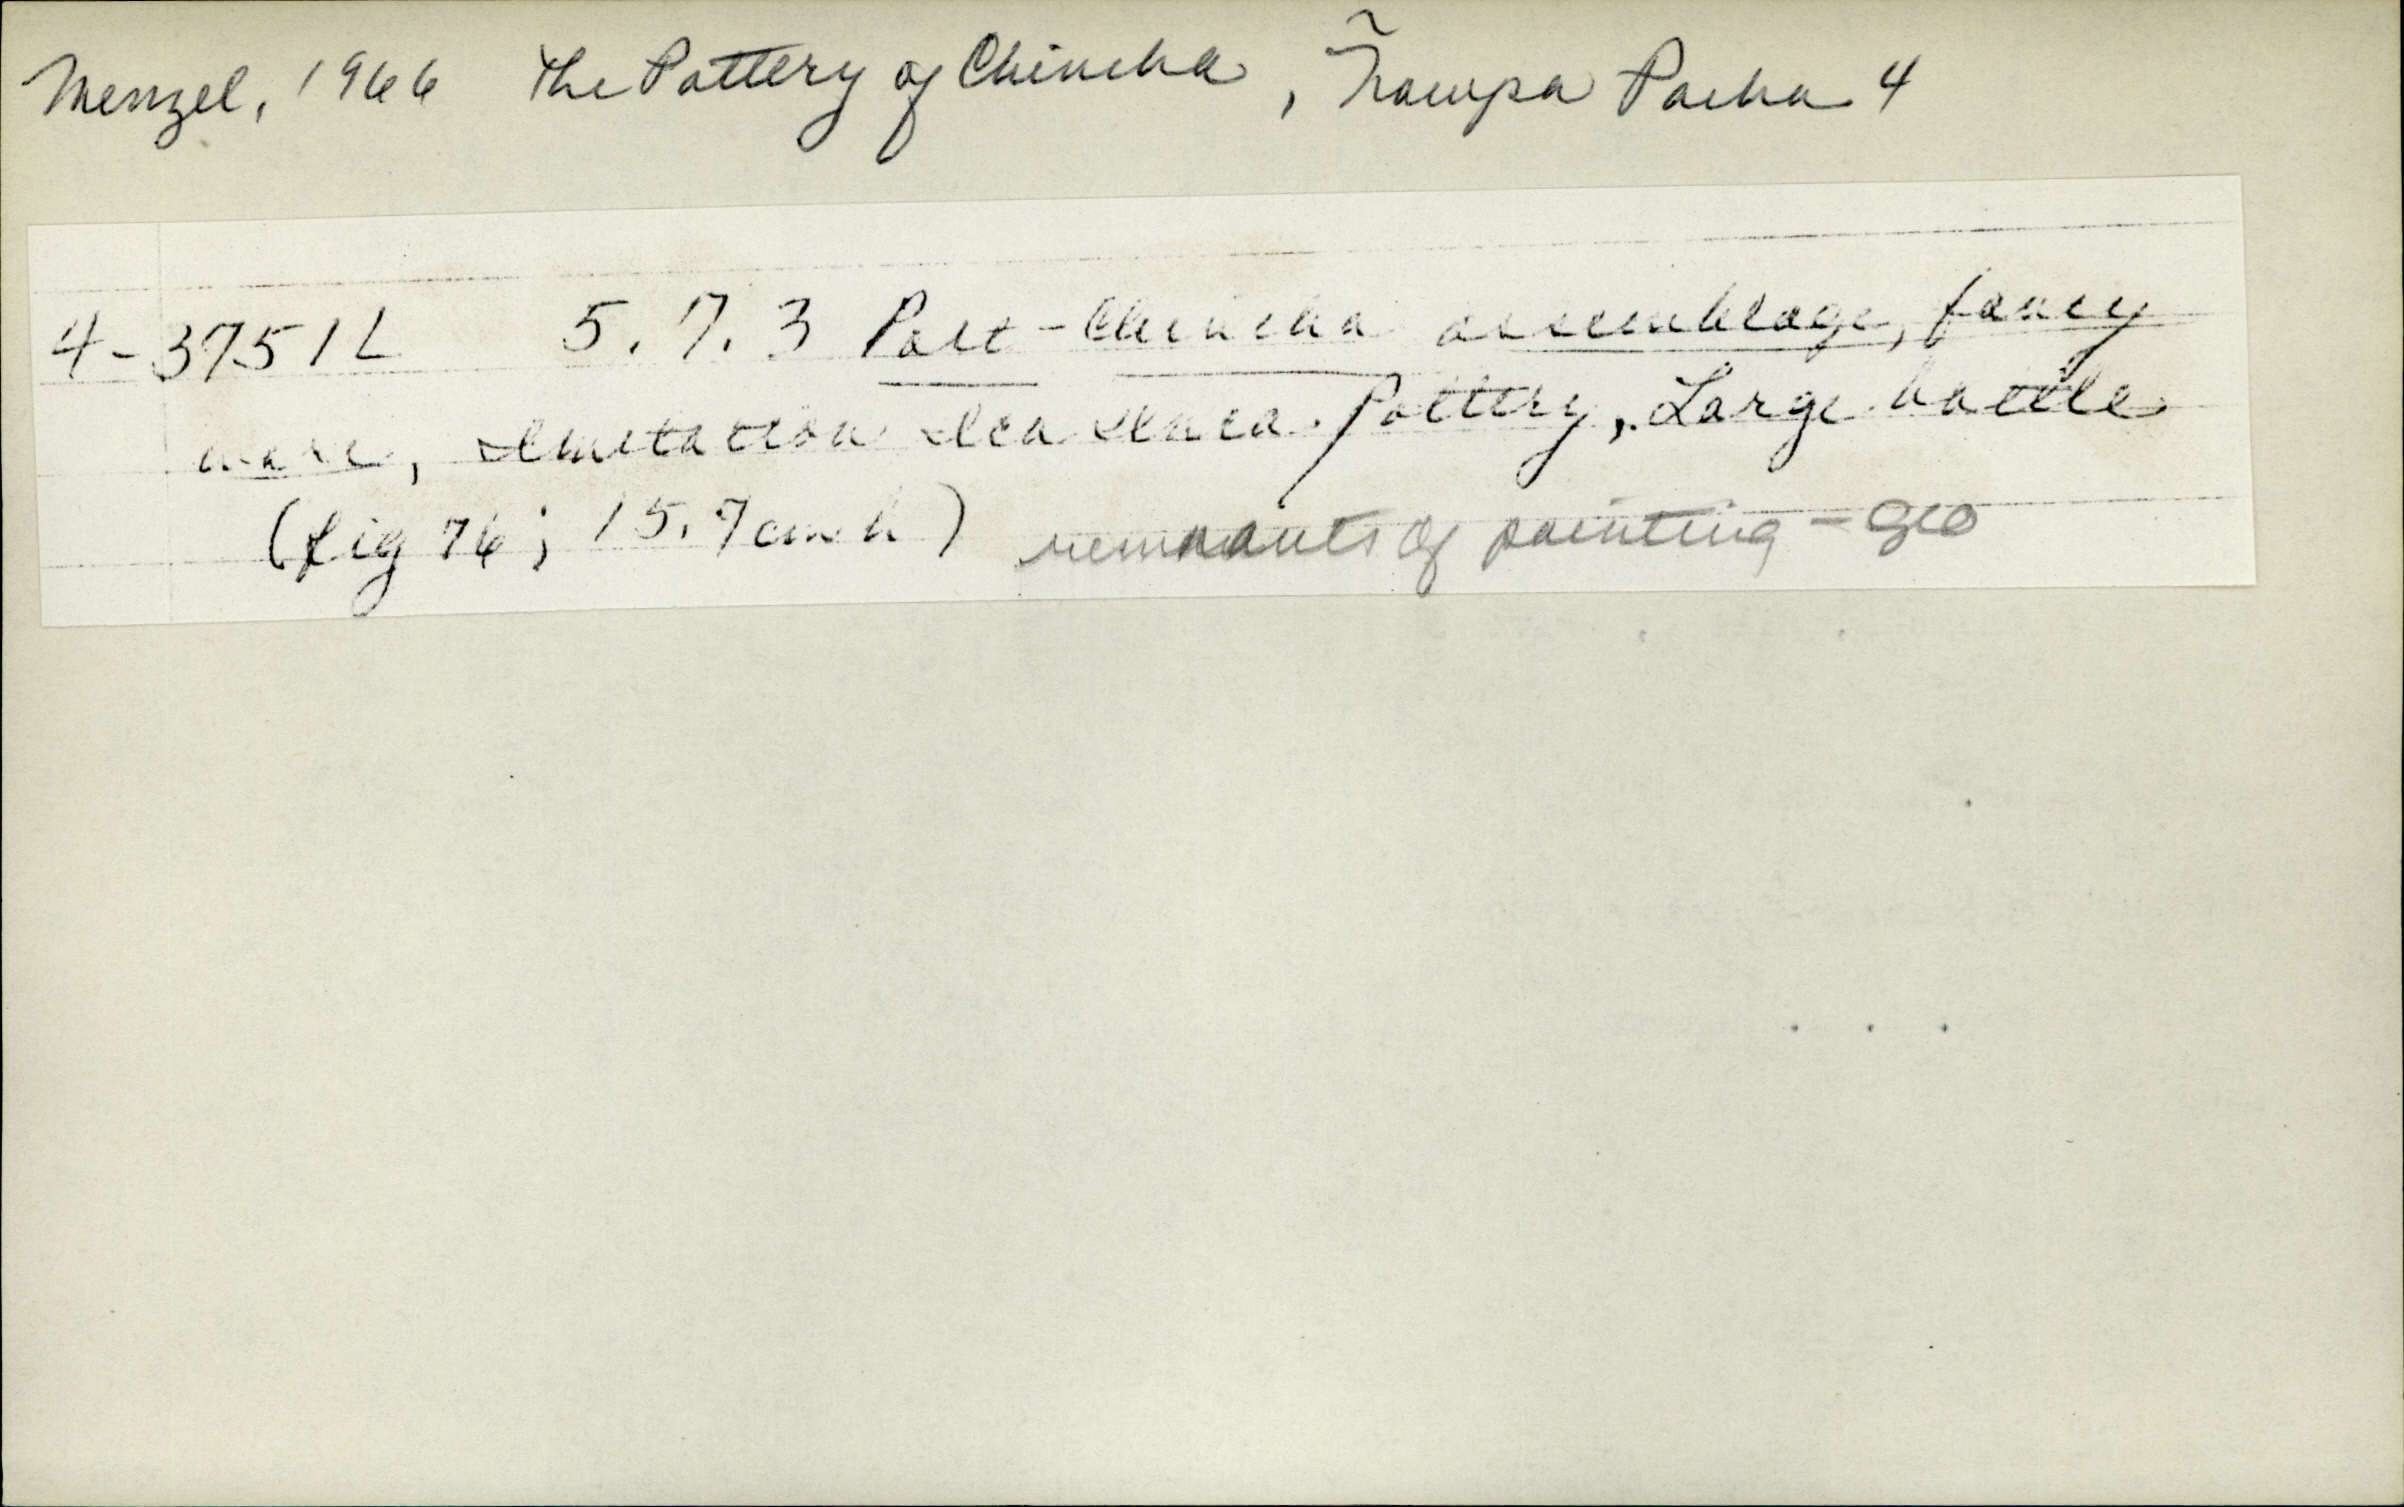 Menzel, 1966 The Pottery of Chincha, Ñawpa Pacha 4
4-3751L 5.7.3 Post-Chincha assemblage, fancy
ware, Imitation Ica Inca. Pottery, Large bottle
(fig 76; 15.7cm h) remnants of painting - geo